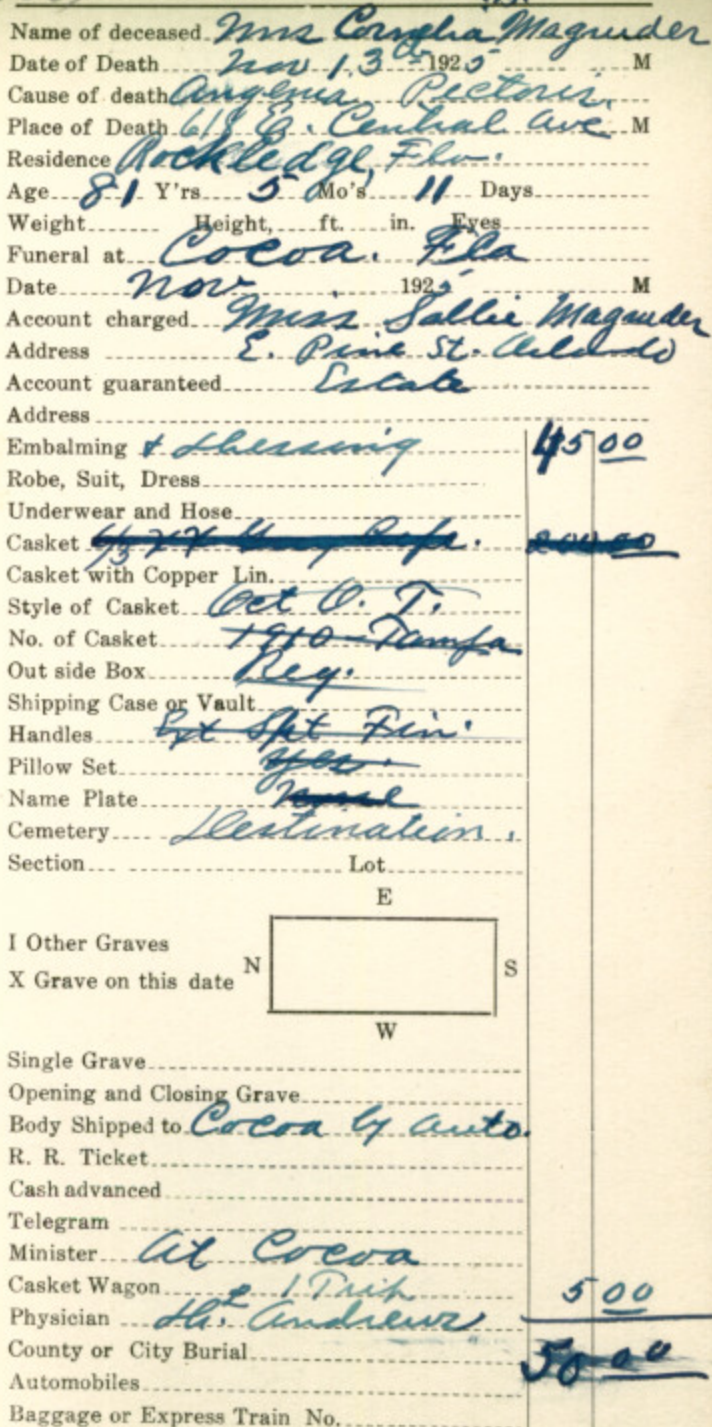 Name of deceased Mrs Cornelia Magruder
Date of Death Nov 13th 1925 M
Cause of death Angenia Pectoris.
Place of Death 618 E. Central Ave M
Residence Rockledge, Fla.
Age 81 Y'rs 5 Mo's 11 Days
Weight Height, ft. in. Eyes
Funeral at Cocoa. Fla
Date Nov 1925 M
Account charged Miss Sallie Magruder
Address E. Pine St. Orlando
Account guaranteed Estate
Address
Embalming & Dressing 45 00
Robe, Suit, Dress
Underwear and Hose
Casket 6/3 XX Gray 200 00
Casket with Copper Lin.
Style of Casket Oct O. T.
No. of Casket 1910-Tampa
Out side Box Reg.
Shipping Case or Vault
Handles Ext Fin.
Pillow Set yes.
Name Plate None
Cemetery Destination.
Section Lot
E
I Other Graves
N S
X Grave on this date
W
Single Grave
Opening and Closing Grave
Body Shipped to Cocoa by auto.
R. R. Ticket
Cash advanced
Telegram
Minister At Cocoa
Casket Wagon 1 Trip 5 00
Physician Andrews
County or City Burial 50 00
Automobiles
Baggage or Express Train No.